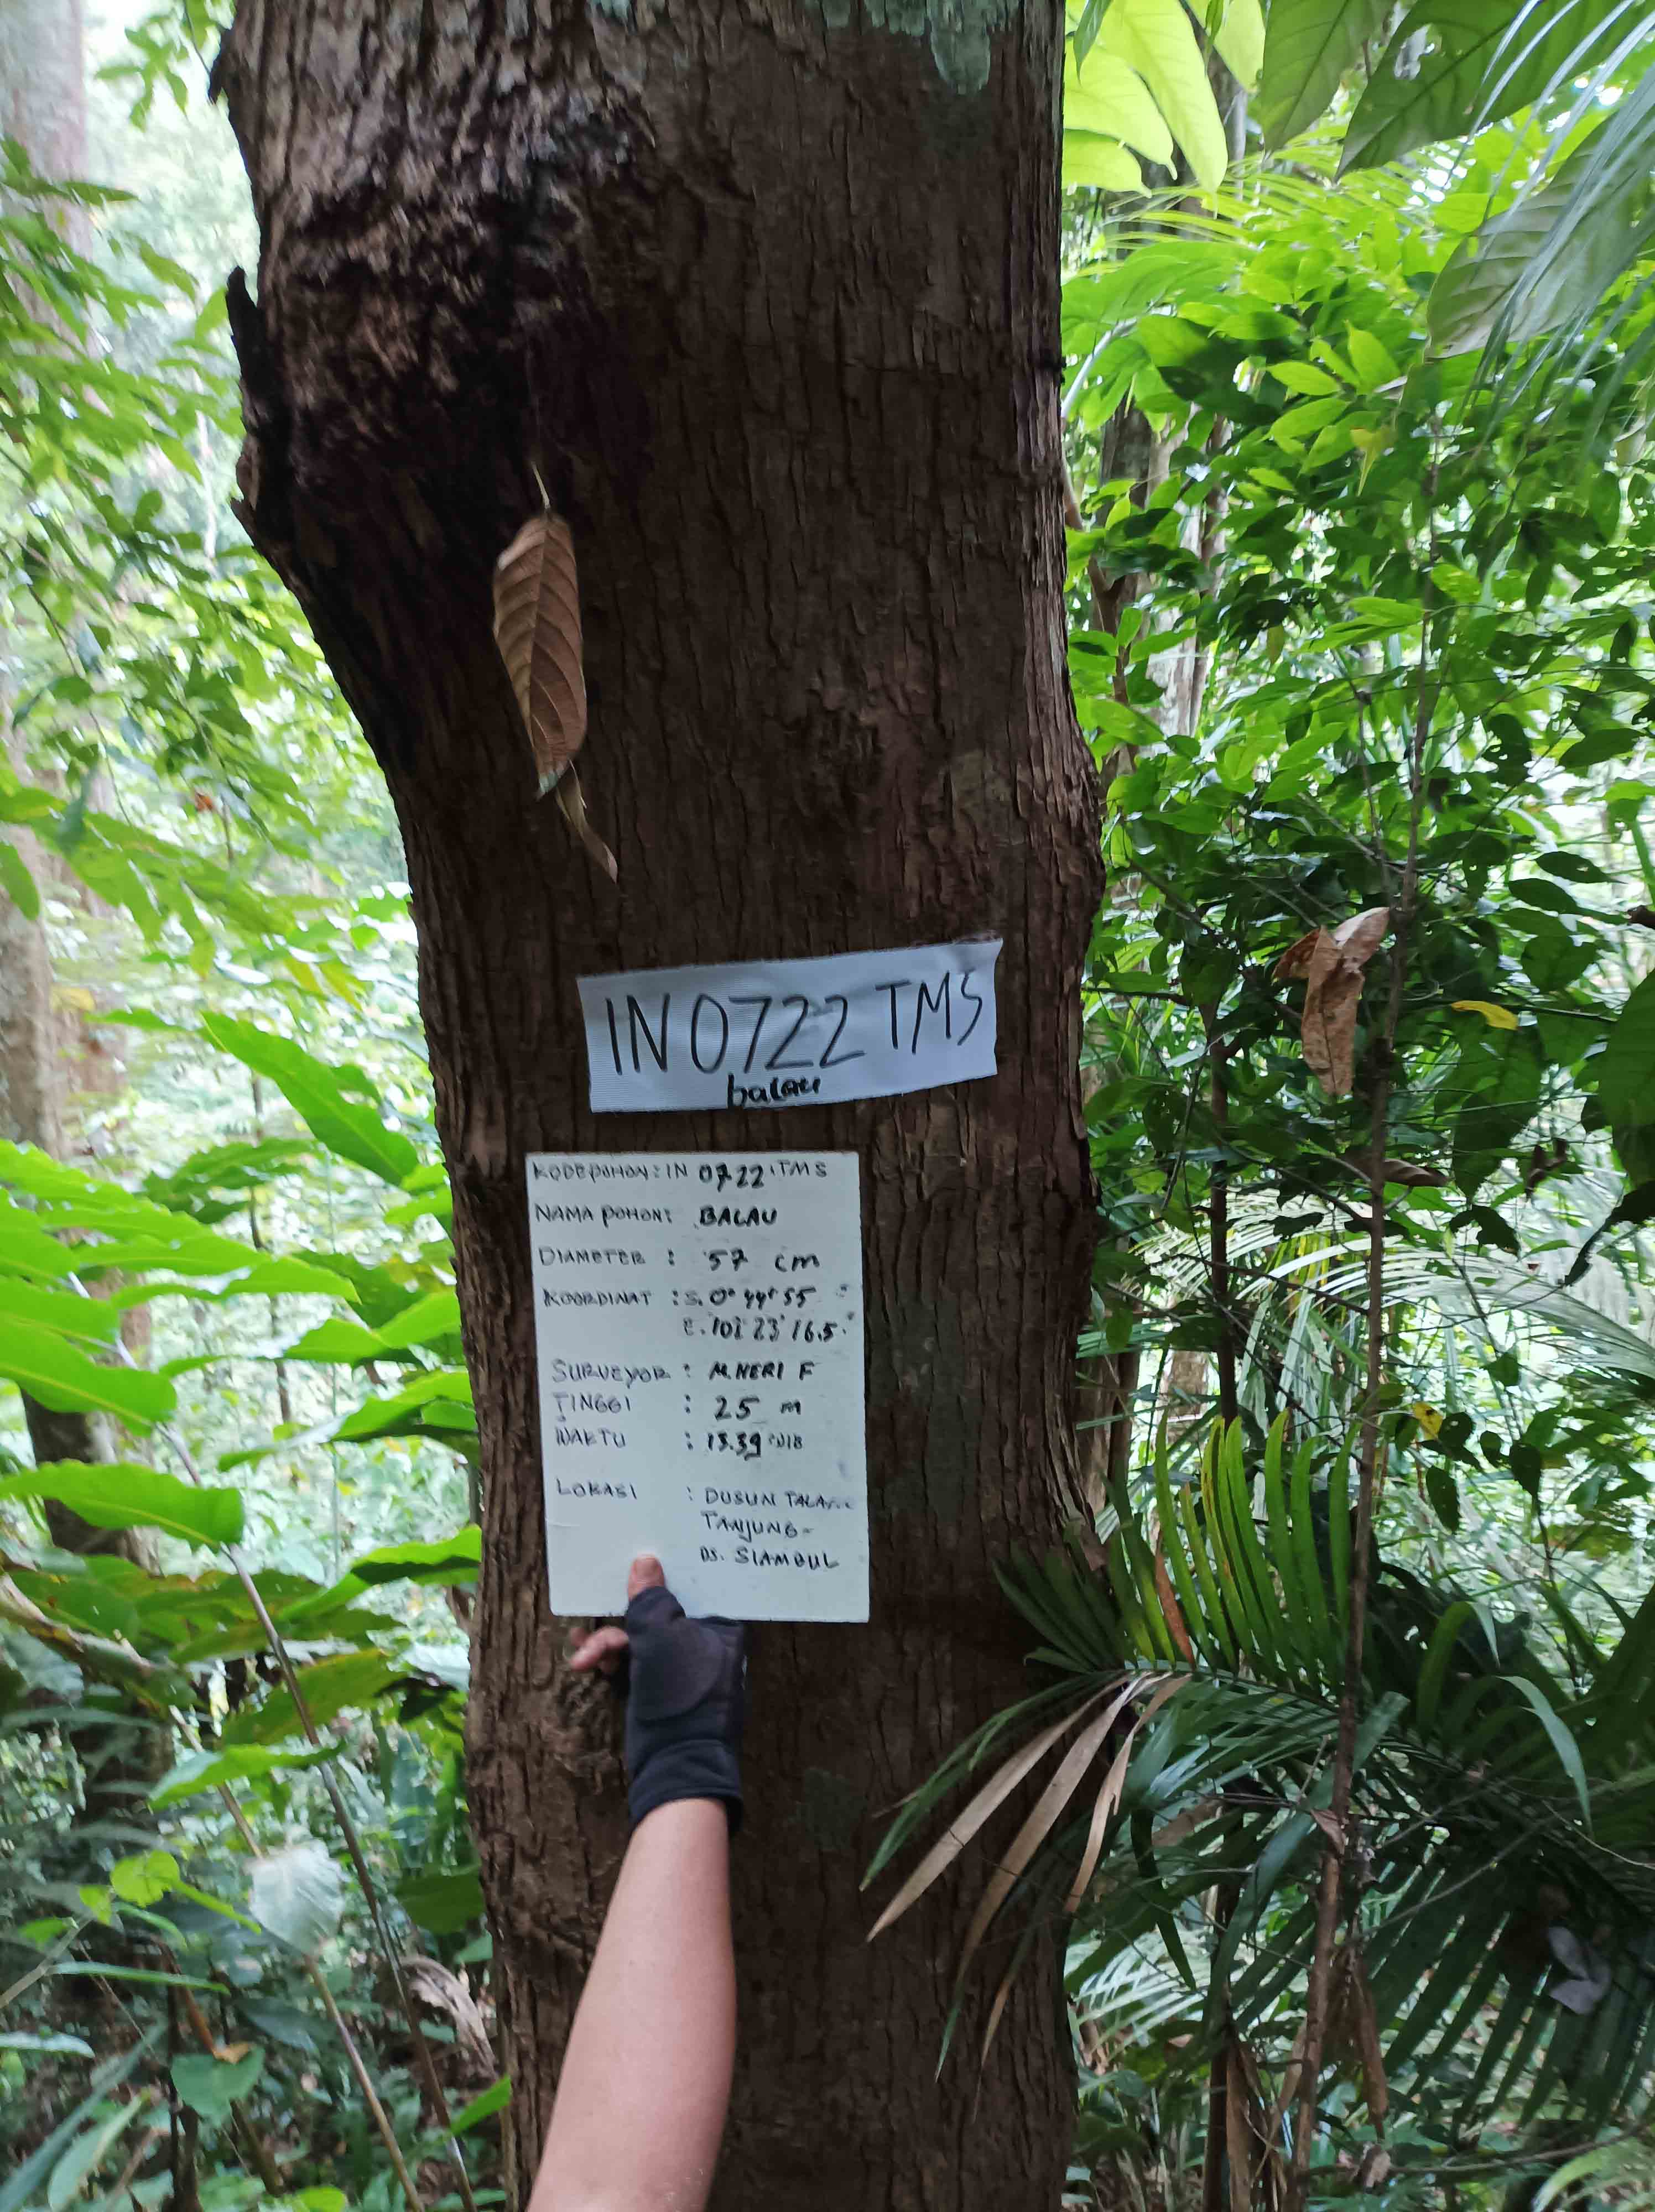 IN 0722 TMS
balau
KODE POHON : IN 0722 TMS
NAMA POHON : BALAU
DIAMETER : 57 cm
KOORDINAT : S. 0° 44' 55"
E. 102 23' 16.5"
SURVEYOR : M. HERI F
TINGGI : 25 m
WAKTU : 13.39 WIB
LOKASI : DUSUN
TANJUNG -
DS. SIAMBUL